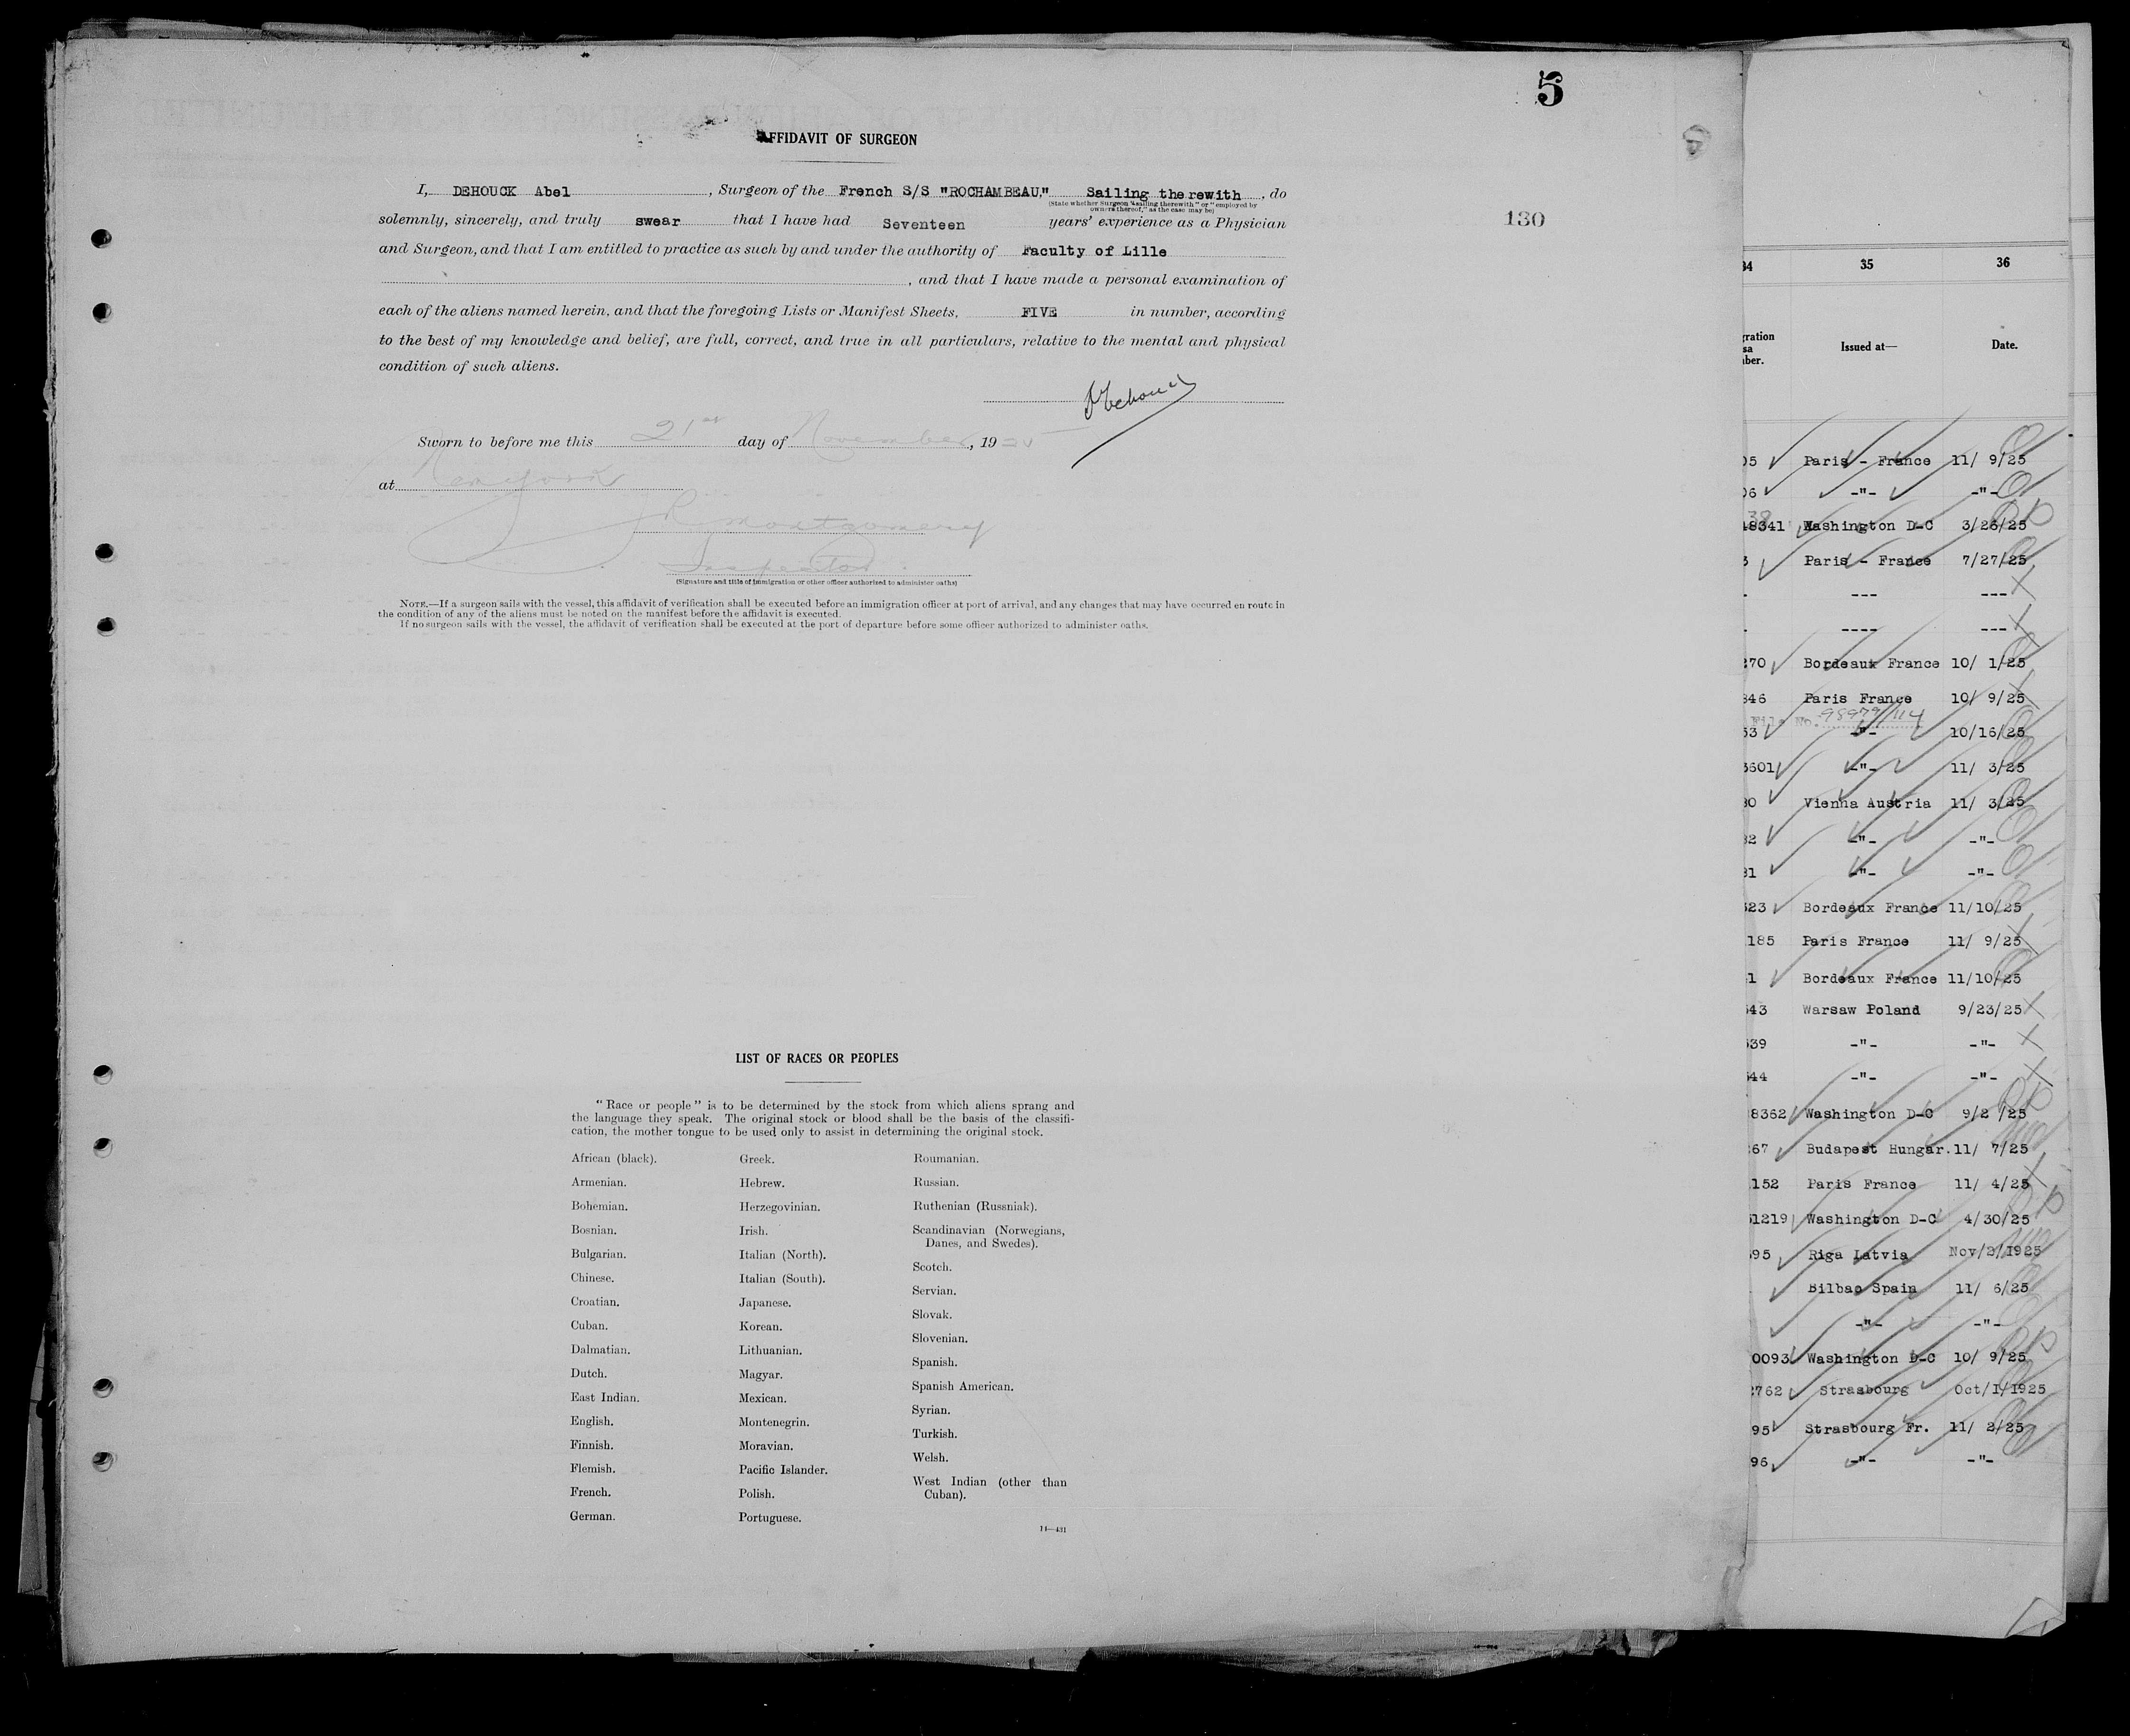 5
AFFIDAVIT OF SURGEON
I, DEHOUCK Abel , Surgeon of the French S/S "ROCHAMBEAU," Sailing therewith , do
(State whether Surgeon "sailing therewith" or "employed by
owners thereof," as the case may be)
solemnly, sincerely, and truly swear that I have had Seventeen years' experience as a Physician
130
and Surgeon, and that I am entitled to practice as such by and under the authority of Faculty of Lille
, and that I have made a personal examination of
each of the aliens named herein, and that the foregoing Lists or Manifest Sheets, FIVE in number, according
to the best of my knowledge and belief, are full, correct, and true in all particulars, relative to the mental and physical
condition of such aliens.
Dehouck
Sworn to before me this 21st day of November, 1925
at New York
Montgomery
Inspector
(Signature and title of immigration or other officer authorized to administer oaths)
NOTE.—If a surgeon sails with the vessel, this affidavit of verification shall be executed before an immigration officer at port of arrival, and any changes that may have occurred en route in
the condition of any of the aliens must be noted on the manifest before the affidavit is executed.
If no surgeon sails with the vessel, the affidavit of verification shall be executed at the port of departure before some officer authorized to administer oaths.
LIST OF RACES OR PEOPLES
"Race or people" is to be determined by the stock from which aliens sprang and
the language they speak. The original stock or blood shall be the basis of the classifi-
cation, the mother tongue to be used only to assist in determining the original stock.
African (black).
Armenian.
Bohemian.
Bosnian.
Bulgarian.
Chinese.
Croatian.
Cuban.
Dalmatian.
Dutch.
East Indian.
English.
Finnish.
Flemish.
French.
German.
Greek.
Hebrew.
Herzegovinian.
Irish.
Italian (North).
Italian (South).
Japanese.
Korean.
Lithuanian.
Magyar.
Mexican.
Montenegrin.
Moravian.
Pacific Islander.
Polish.
Portuguese.
Roumanian.
Russian.
Ruthenian (Russniak).
Scandinavian (Norwegians,
Danes, and Swedes).
Scotch.
Servian.
Slovak.
Slovenian.
Spanish.
Spanish American.
Syrian.
Turkish.
Welsh.
West Indian (other than
Cuban).
14—431
34 35 36
gration
sa
ber.
Issued at— Date.
05 Paris - France 11/ 9/25
06 -"- -"-
48341 Washington D-C 3/26/25
3 Paris - France 7/27/25
- --- ---
- ---- ---
270 Bordeaux France 10/ 1/25
346 Paris France 10/ 9/25
File No. 98979/114
53 -"- 10/16/25
3601 -"- 11/ 3/25
30 Vienna Austria 11/ 3/25
32 -"- -"-
31 -"- -"-
523 Bordeaux France 11/10/25
185 Paris France 11/ 9/25
1 Bordeaux France 11/10/25
543 Warsaw Poland 9/23/25
539 -"- -"-
544 -"- -"-
8362 Washington D-C 9/2 /25
267 Budapest Hungar. 11/ 7/25
152 Paris France 11/ 4/25
51219 Washington D-C 4/30/25
595 Riga Latvia Nov/2/1925
Bilbao Spain 11/ 6/25
-"- -"-
0093 Washington D-C 10/ 9/25
2762 Strasbourg Oct/1/1925
95 Strasbourg Fr. 11/ 2/25
96 -"- -"-